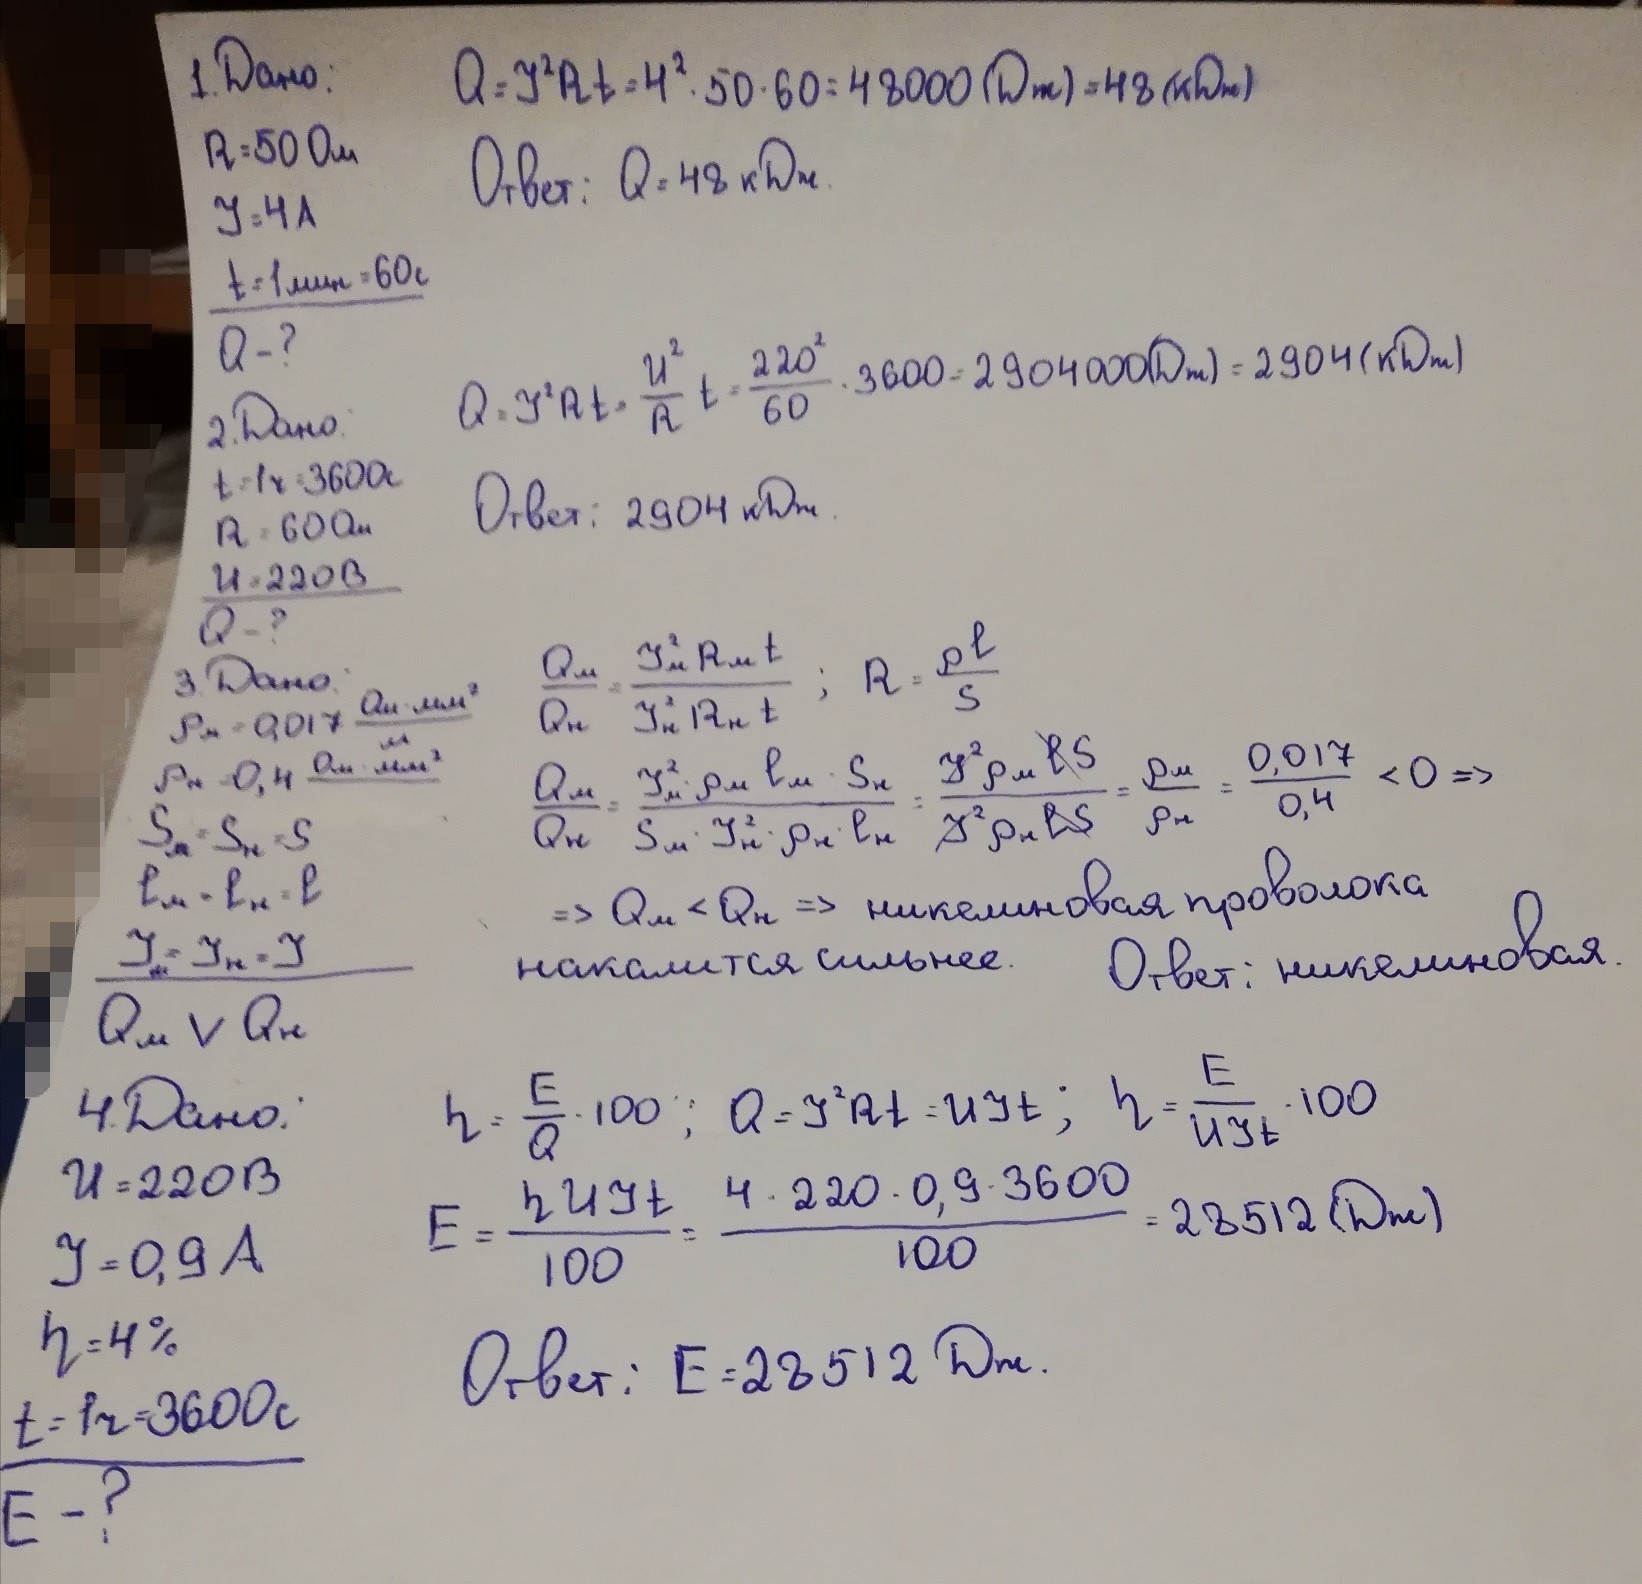 1. Дано:
R = 50 Ом
I = 4 А
t = 1 мин = 60 с
Q - ?
Q = I²Rt = 4² · 50 · 60 = 48000 (Дж) = 48 (кДж)
Ответ: Q = 48 кДж.
2. Дано:
t = 1 ч = 3600 с
R = 60 Ом
U = 220 В
Q - ?
Q = I²Rt = U²/R t = 220²/60 · 3600 = 2904000 (Дж) = 2904 (кДж)
Ответ: 2904 кДж.
3. Дано:
ρм = 0,017 Ом · мм²/м
ρн = 0,4 Ом · мм²
Sм = Sн = S
lм = lн = l
Iм = Iн = I
Qм ∨ Qн
Qм/Qн = Iм²Rмt/Iн²Rнt ; R = ρl/S
Qм/Qн = Iм² · ρм lм · Sн/Sм · Iн² · ρн · lн = I²ρм lS/I²ρн lS = ρм/ρн = 0,017/0,4 < 0 =>
=> Qм < Qн => никелиновая проволока
накалится сильнее. Ответ: никелиновая.
4. Дано:
U = 220 В
I = 0,9 А
η = 4%
t = 1 ч = 3600 с
E - ?
η = E/Q · 100 ; Q = I²Rt = UIt ; η = E/UIt · 100
E = ηUIt/100 = 4 · 220 · 0,9 · 3600/100 = 28512 (Дж)
Ответ: E = 28512 Дж.